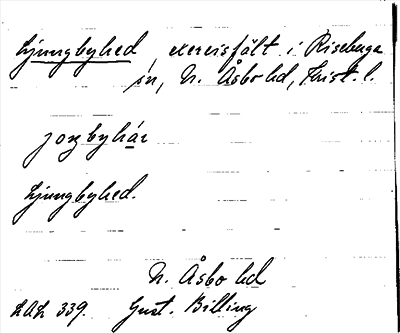 Ljungbyhed, exercisfält i Riseberga
sn, N. Åsbo hd, Krist. l.
Ljungbyhed.
N. Åsbo hd
LAL 339. Gust. Billing